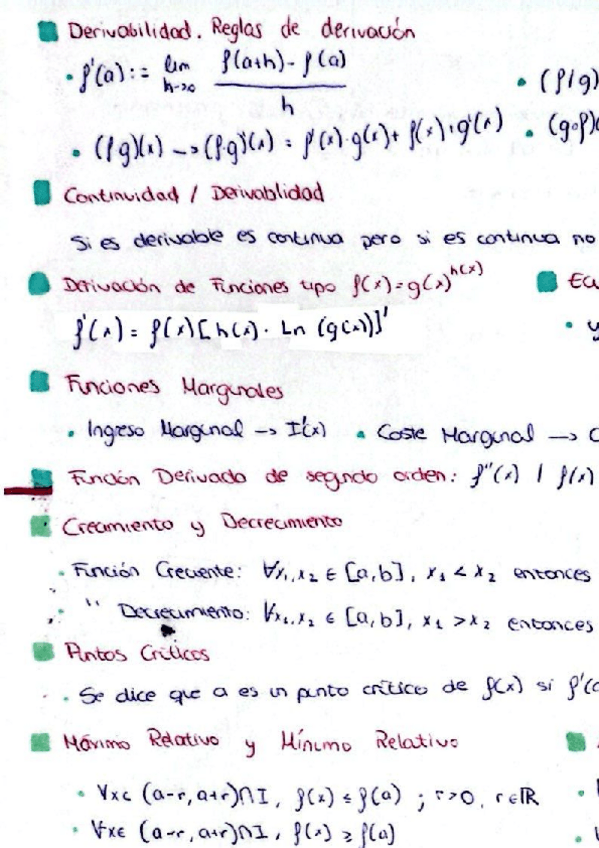 Derivabilidad. Reglas de derivación
· f'(a) := lim h→0 f(a+h) - f(a) / h
· (f/g)
· (f·g)(x) → (f·g)'(x) = f'(x)·g(x) + f(x)·g'(x)
· (g∘f)(
Continuidad / Derivabilidad
Si es derivable es continua pero si es continua no
Derivación de Funciones tipo f(x)=g(x)^h(x)
Ec
f'(x) = f(x)[h(x) · Ln (g(x))]'
· y
Funciones Marginales
· Ingreso Marginal → I'(x) · Coste Marginal → C
Función Derivada de segundo orden: f''(x) / f(x)
Crecimiento y Decrecimiento
· Función Creciente: ∀x₁,x₂ ∈ [a,b], x₁ < x₂ entonces
· " Decrecimiento: ∀x₁,x₂ ∈ [a,b], x₁ > x₂ entonces
Puntos Críticos
· Se dice que a es un punto crítico de f(x) si f'(a
Máximo Relativo y Mínimo Relativo
· ∀x∈ (a-r, a+r)∩I, f(x) ≤ f(a) ; r>0, r∈ℝ
· ∀x∈ (a-r, a+r)∩I, f(x) ≥ f(a)